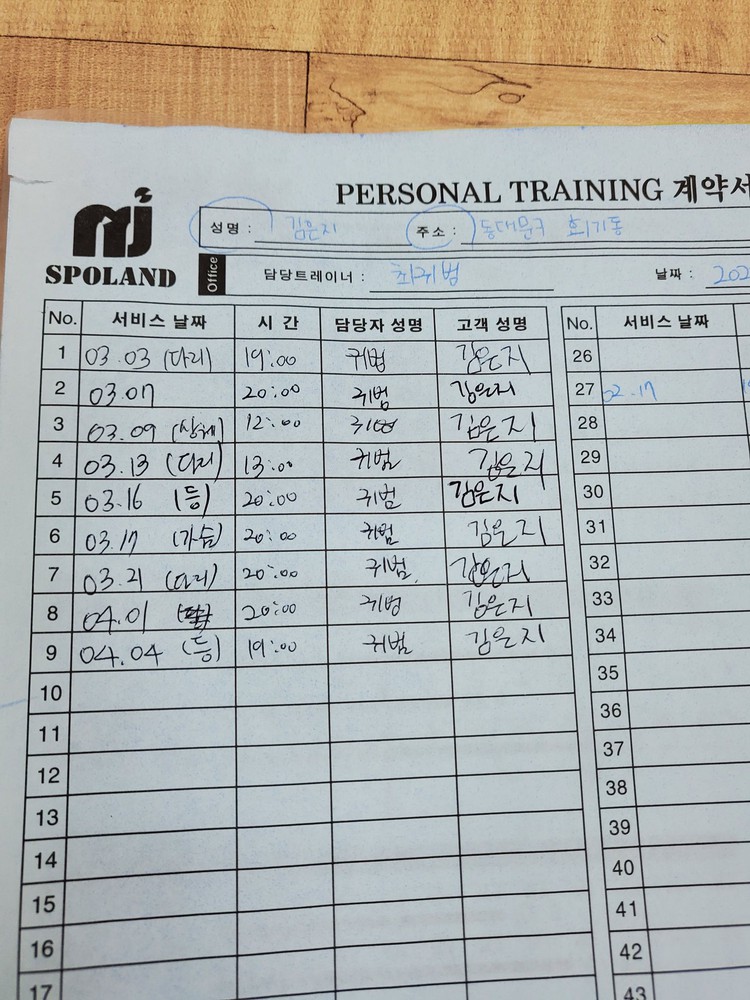 PERSONAL TRAINING 계약서
SPOLAND
성명 : 김은지 주소 : 동대문구 회기동
Office 담당트레이너 : 최귀범 날짜 : 202
No. 서비스 날짜 시 간 담당자 성명 고객 성명 No. 서비스 날짜
1 03.03 (다리) 19:00 귀범 김은지 26
2 03.07 20:00 귀범 김은지 27 02.17
3 03.09 (상체) 12:00 귀범 김은지 28
4 03.13 (다리) 13:00 귀범 김은지 29
5 03.16 (등) 20:00 귀범 김은지 30
6 03.17 (가슴) 20:00 귀범 김은지 31
7 03.21 (다리) 20:00 귀범 김은지 32
8 04.01 20:00 귀범 김은지 33
9 04.04 (등) 19:00 귀범 김은지 34
10 35
11 36
12 37
13 38
14 39
15 40
16 41
17 42
43